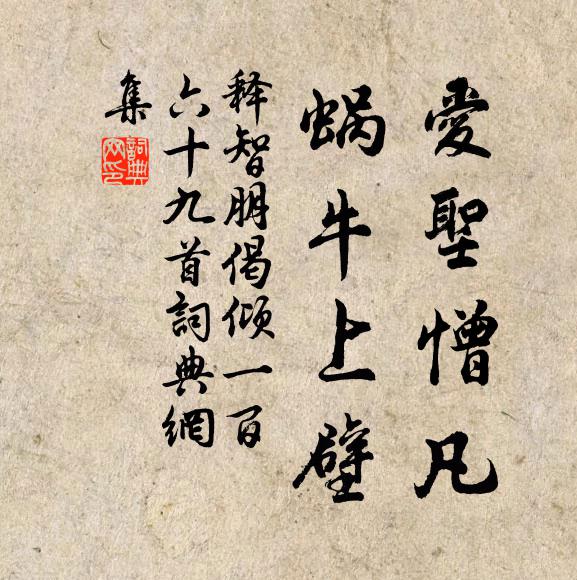 愛聖憎凡
蝸牛上壁
释智朋偈倾一百
六十九首詞典網
集
詞典
网印